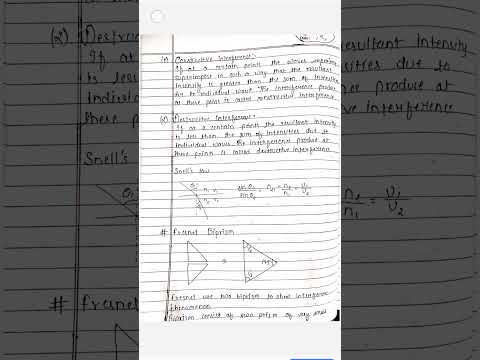 (1) Constructive Interference:-
If at a certain point the waves
superimpose in such a way that the resultant
Intensity is greater than the sum of Intensity
due to individual wave. The interference produce
at these point is called constructive interference.
(2) Destructive Interference:-
If at a certain point the resultant intensity
is less than the sum of intensities due to
individual waves the interference produce at
these points is called destructive interference
Snell's law
θ1 n1 v1
n2 v2
sin θ1 / sin θ2 = n21 = n2/n1 = v1/v2
# Fresnel Biprism
Fresnel use two biprism to show interference
phenomenon.
Biprism consist of two prism of very small
(2) Destruc
If at
is less
Individual
these point
Snell's
# fresnel
resultant Intensity
ities due to
produce at
ive interference
n2/n1 = v1/v2